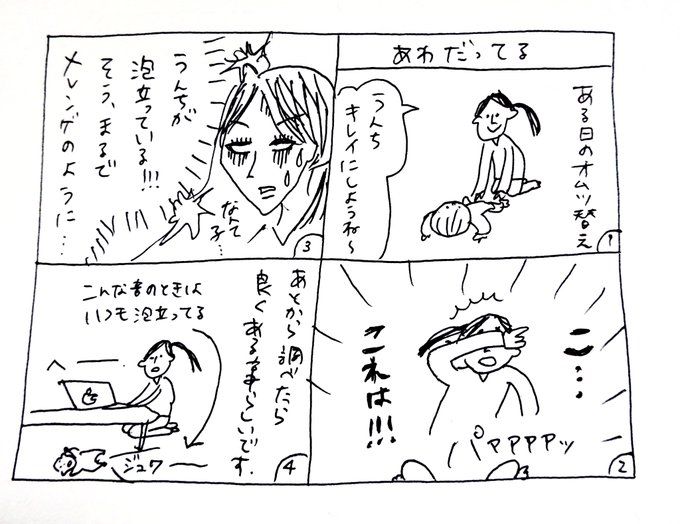 あわだってる
ある日のオムツ替え
うんち
キレイにしようね〜
1
こ…
これは!!!
パァァァァッ
2
うんちが
泡立っている!!!
そう、まるで
メレンゲのように…
なんて
子…
3
あとから調べたら
良くある事らしいです。
こんな音のときは
いつも泡立ってる
へー
ジュワー
4